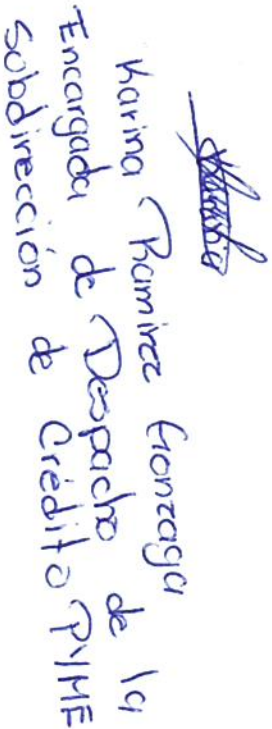 Karina Ramirez Gonzaga
Encargada de Despacho de la
Subdirección de Crédito PYME